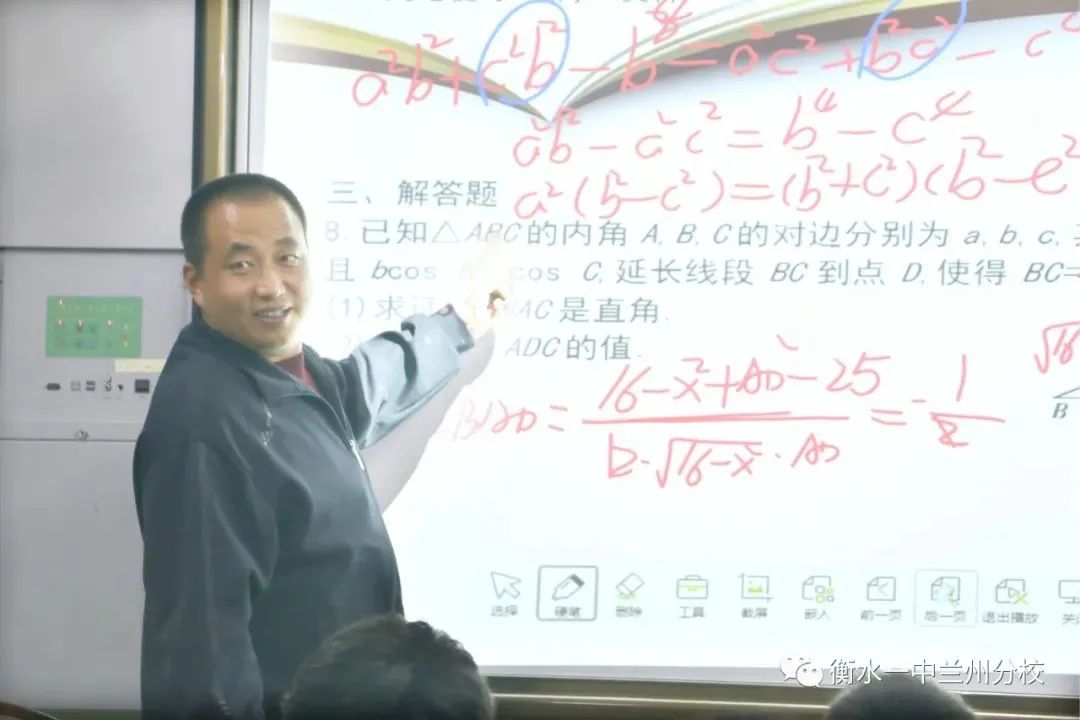 a²b²+c²b²-b⁴=a²c²+b²c²-c
a²b²-a²c²=b⁴-c⁴
三、解答题
a²(b²-c²)=(b²+c²)(b²-c²
8. 已知△ABC的内角 A, B, C的对边分别为 a, b, c,
且 bcos cos C, 延长线段 BC 到点 D, 使得 BC=
(1) 求证 AC是直角.
ADC的值.
√16
B
16-x²+AD²-25
=
2·√16-x²·AD
=-1/2
选择 硬笔 删除 工具 截屏 嵌入 前一页 后一页 退出播放 关
衡水一中兰州分校